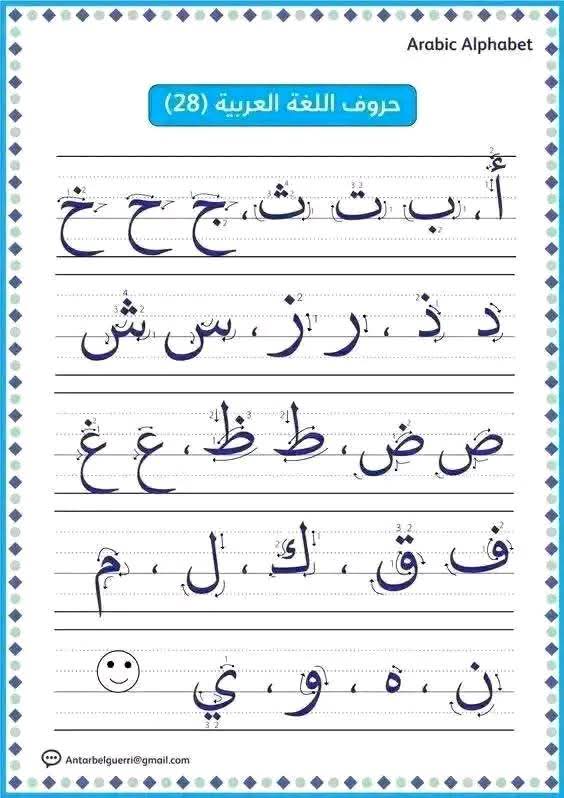 Arabic Alphabet
حروف اللغة العربية (28)
أ، ب ت ث، ج ح خ
د ذ، ر ز، س ش
ص ض، ط ظ، ع غ
ف ق، ك، ل، م
ن، ه، و، ي
Antarbelguerri@gmail.com